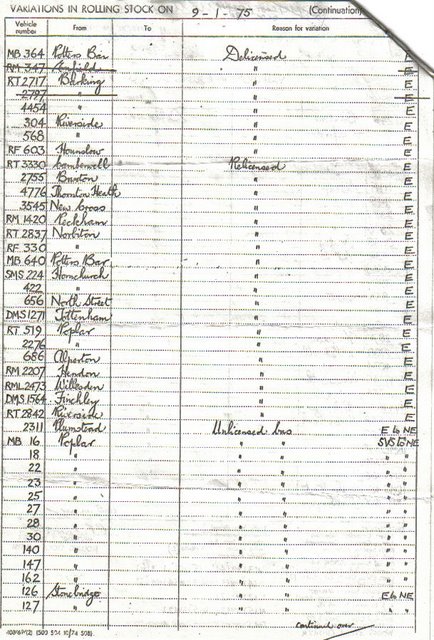 VARIATIONS IN ROLLING STOCK ON 9-1-75 (Continuation)
Vehicle number From To Reason for variation
MB 364 Potters Bar Delicensed E
RM 347 Enfield " E
RT 2717 Barking " E
2797 " " E
4454 " " E
304 Riverside " E
568 " " E
RF 603 Hounslow " E
RT 3330 Camberwell Relicensed E
2755 Brixton " E
4776 Thornton Heath " E
3545 New Cross " E
RM 1420 Peckham " E
RT 2837 Norbiton " E
RF 330 " " E
MB 640 Potters Bar " E
SMS 224 Hornchurch " E
422 " " E
656 North Street " E
DMS 1271 Tottenham " E
RT 519 Poplar " E
2276 " " E
686 Alperton " E
RM 2207 Hendon " E
RML 2473 Willesden " E
DMS 1564 Finchley " E
RT 2842 Riverside " E
2311 Plumstead Unlicensed bus E to NE
MB 16 Poplar " " SVS to NE
18 " " " " "
22 " " " " "
23 " " " " "
25 " " " " "
27 " " " " "
28 " " " " "
30 " " " " "
140 " " " " "
147 " " " " "
162 " " " " "
126 Stonebridge " " E to NE
127 " " " " "
continued over